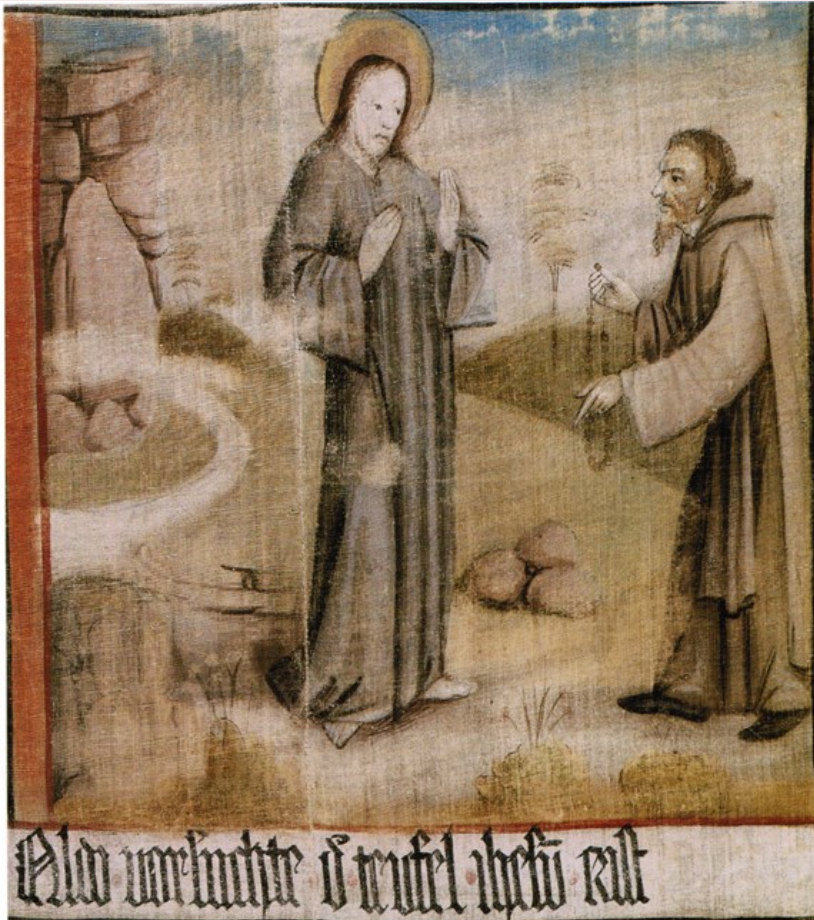 Aldo vorsuchte d̛ teufel ihesū crist